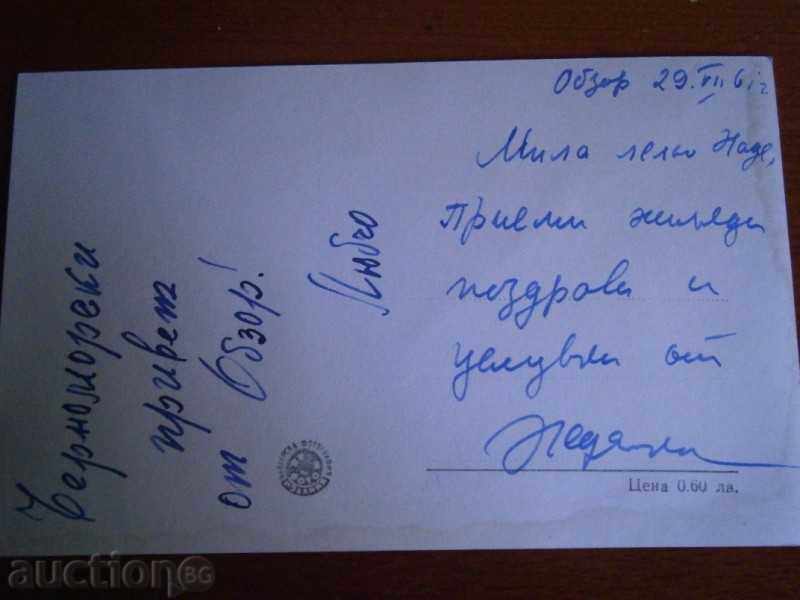 Обзор 29.VII 61 г.
Мила лельо Наде,
Приеми хиляди
поздрави и
целувки от
Недялка
Цена 0.60 лв.
Черноморски
привет
от Обзор!
Любчо
auction BG